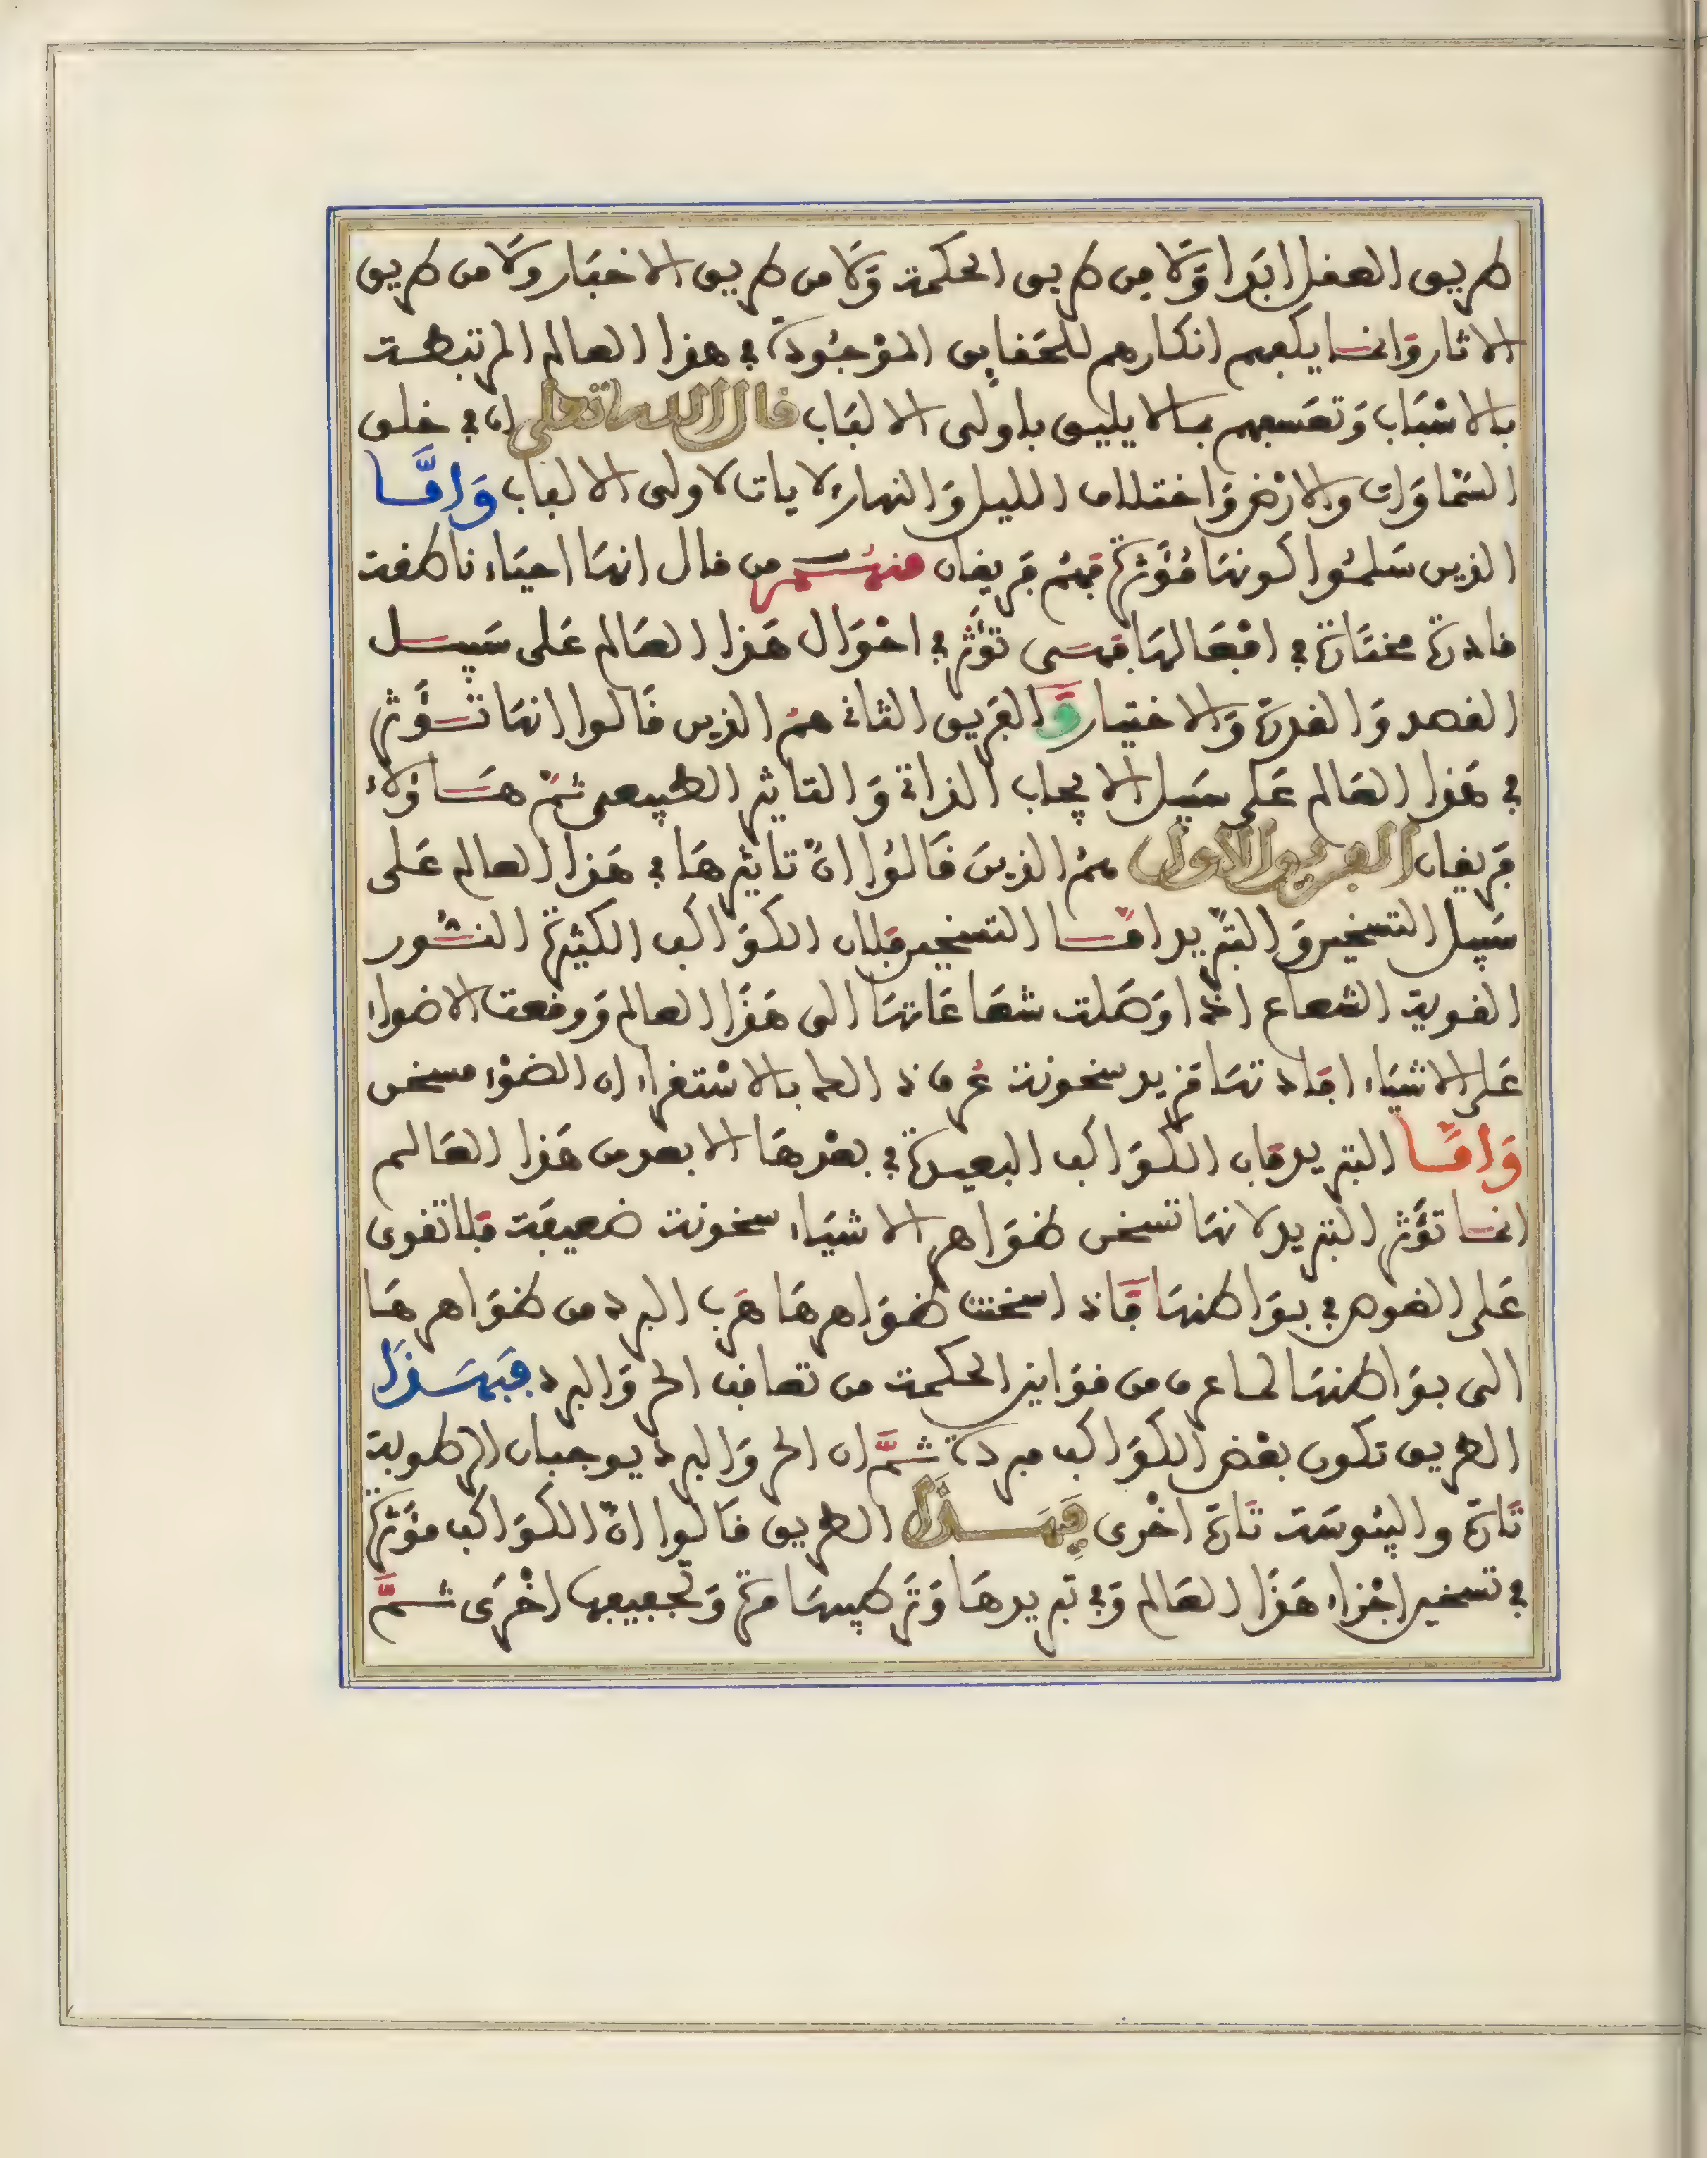 طريق العقل ابَدا وَّلَا مِن طريق الحكمة وَلَا من طريق الاخبَار وَلَا من طريق
الاثار وَانما يكفيهم انكارهم للحَقايق الموْجُودة في هذا العالم المرتبطة
بالاسْبَاب وَتعَسفهم بمالا يليق باولى الالبَاب قال الله تعلى ان في خلق
السّمَاوَات والارْض وَاختلاف الليل وَالنهار لايات لاولى الالباب وَامَّا
الذين سَلمُوا كونهَا مُؤَثرة فهُم فريقان منهُم من قال انهَا احيَاء ناطقة
قادرة مختَارة في افعَالهَا فهىَ تؤَثر في احْوَال هَذا العَالم عَلى سَبِيل
القصد وَالقدرة وَالاختيار وَالفريق الثانى همُ الذين قَالوا انهَا تُؤَثر
في هَذا العَالم عَلى سَبيل الايجاب الذاتى وَالتاثير الطبيعى ثمّ هَاؤلَاء
فريقان الفريق الاول همُ الذينَ قَالوُا انّ تاثيرهَا في هَذا العالم عَلى
سَبيل التسخين وَالتبريد امّا التسخين فلان الكوَاكب الكثيرة النُّور
القوية الشعاع اذا وَصَلت شعَاعَاتهَا الى هَذَا العالم وَوقعت الاضواء
عَلى الاشيَاء افادتهَا مزيد سخونة عُرف ذالك بالاسْتقراء ان الضوْء مسخن
وَامّا التبريد فان الكوَاكب البعيدة في بعْدهَا الابعد من هَذا العَالم
انما تؤَثر التبريد لانهَا تسخن ظوَاهر الاشيَاء سخونة ضعيفَة فلا تقوى
عَلى الغوص في بوَاطنهَا فَاذا سخنت ظوَاهرهَا هَرب البرد من ظوَاهرهَا
الى بوَاطنهَا لما عرف من قوَانين الحكمة من تعاقب الحر وَالبرد فبهَذَا
الطريق تكون بعْض الكوَاكب مبردة ثمَّ ان الحر وَالبرد يوجبان الرطوبة
تَارة واليبُوسَة تَارة اخْرى فبهَذَا الطريق قَالوا انّ الكوَاكب مؤَثرة
في تسخين اجْزاء هَذَا العَالم وَفي تبريدهَا وَتَرطيبهَا مرة وَتجفيفها اخْرَى ثمَّ